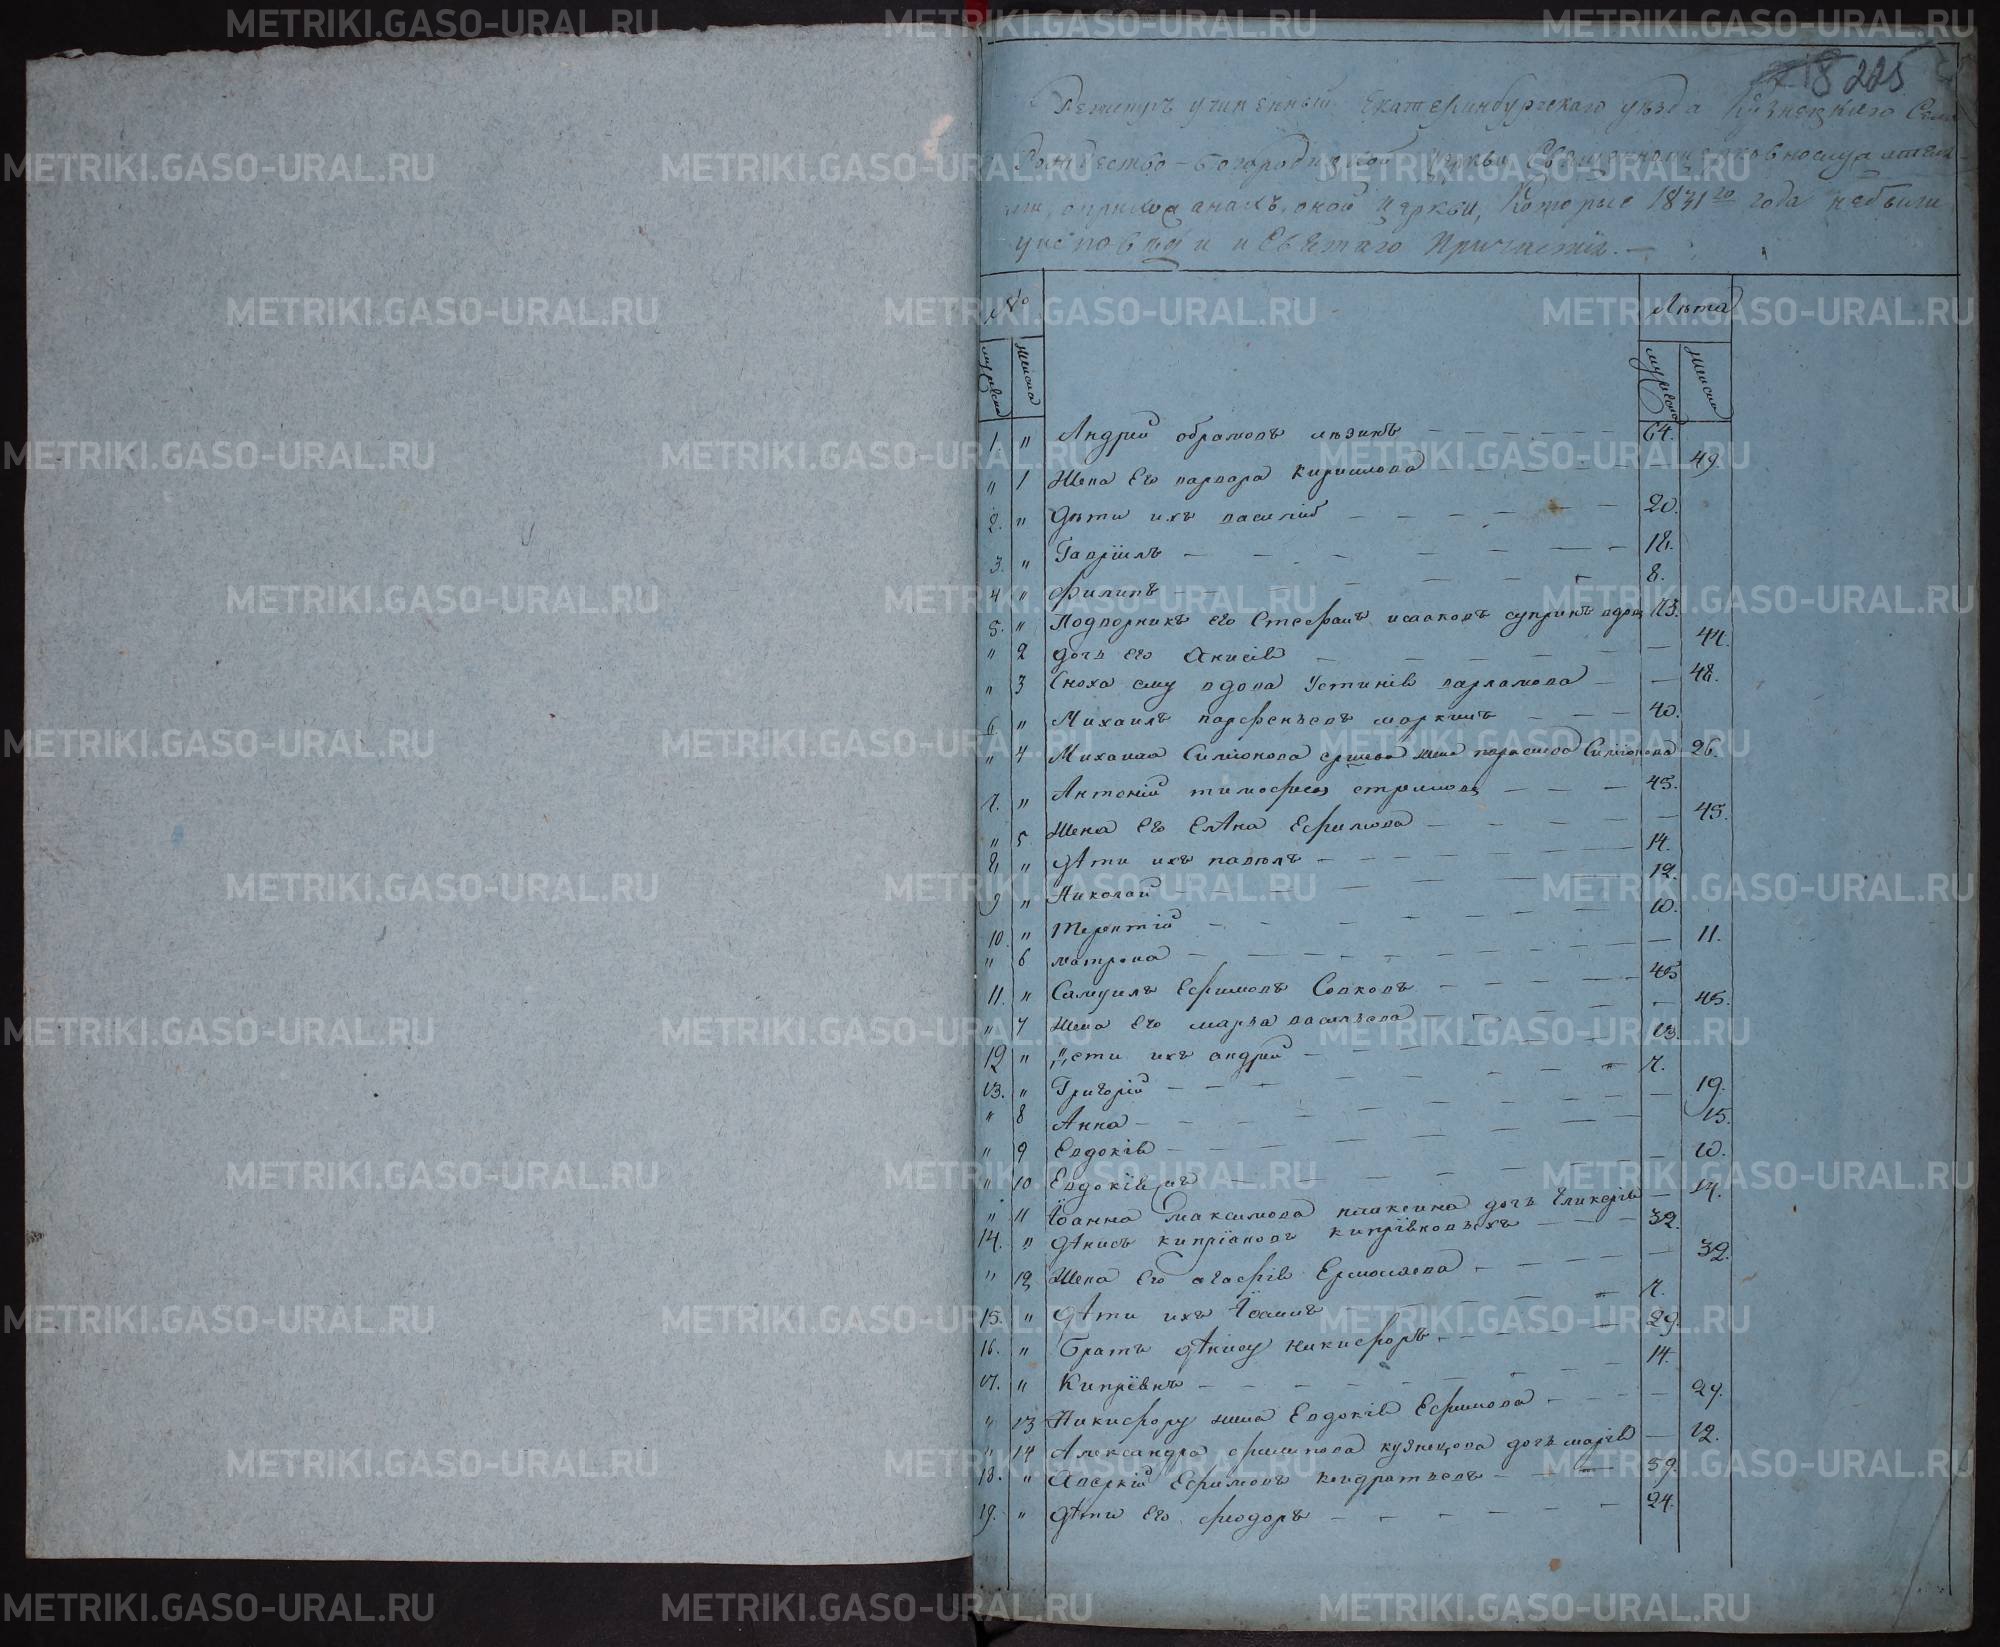 225
Реэстръ учиненный Екатеринбургскаго уѣзда Кузнецкаго Села
Рождество-Богородицкой церкви Священноцерковнослужителя-
ми, оприхожанахъ оной церкви, Которые 1831го года небыли
уисповѣди и Святаго Причастія. —
№ Лѣта
мужеска женска мужеска женска
1. " Андрей обрамовъ мѣзинъ 64.
" 1 Жена Его варвара Кирилова 49.
2. " Дѣти ихъ василій 20.
3. " Гавріилъ 18.
4 " Филипъ 8.
5. " Подворникъ Его Стефанъ исааковъ супринъ вдовъ 73.
" 2 дочь Его Анисія 44.
" 3 Сноха ему вдова Устинія варламова 48.
6. " Михаилъ парфеньевъ маркинъ 40.
" 4 Михаила Симіонова жена парасковія Симіонова 26.
7. " Антоній тимофеевъ 45.
" 5 Жена Его Елѣна Ефимова 45.
8 " дѣти ихъ павелъ 14.
9 " Николай 12.
10. " Терентій 10.
" 6 матрона 11.
11. " Самуилъ Ефимовъ Совковъ 45
" 7 Жена Его марѳа васильева 45.
12 " дети ихъ андрей 13.
13. " Григорій 7.
" 8 Анна 19.
" 9 Евдокія 15.
" 10 Евдокія 10.
" 11 Іоанна максимова дочь Гликерія 14.
14. " дѣнисъ кипріановъ 32.
" 12 Жена Его агафія Ермолаева 32.
15. " дѣти ихъ Іоаннъ 7.
16. " Братъ дѣнису никифоръ 29.
17. " Кипріянъ 14.
" 13 Никифору жена Евдокія Ефимова 27.
" 14 Александра филипова кузнецова дочь марія 12.
18. " Аверкій Ефимовъ кондратьевъ 59.
19. " дѣти Его феодоръ 24.
METRIKI.GASO-URAL.RU